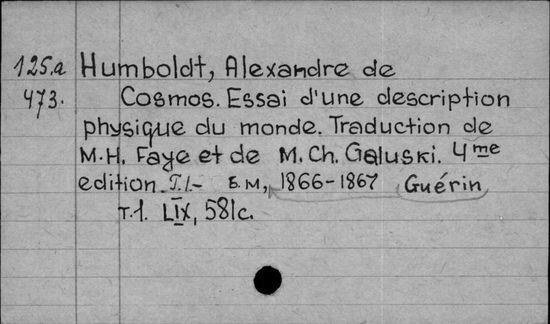 125.a Humboldt, Alexandre de
473. Cosmos. Essai d'une description
physique du monde. Traduction de
M.H. Faye et de M. Ch. Galuski. 4me
edition. T.1.- Б.М, 1866-1867 Guérin
т.1. LIX, 581c.